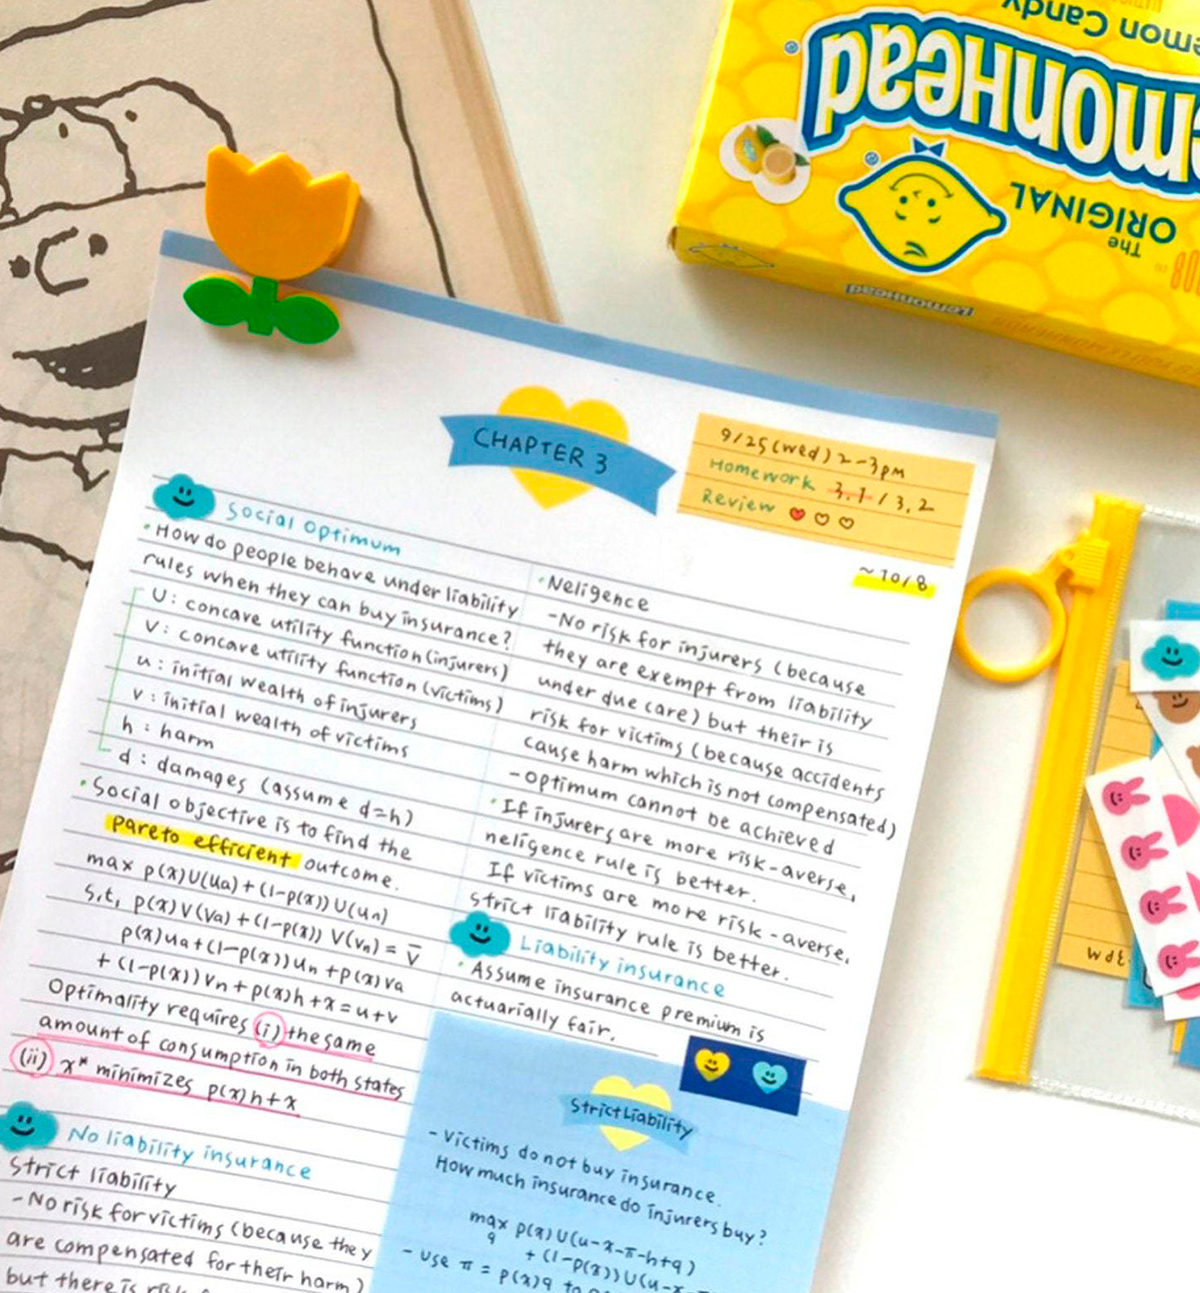 Lemon Candy
Lemonhead
ORIGINAL
The
Lemonhead
CHAPTER 3
9/25 (wed) 2-3pm
Homework 3.1 / 3.2
Review ♥ ♡ ♡
~10/8
Social optimum
• How do people behave under liability
rules when they can buy insurance?
U : concave utility function (injurers)
V : concave utility function (victims)
u : initial wealth of injurers
v : initial wealth of victims
h : harm
d : damages (assume d=h)
• Social objective is to find the
pareto efficient outcome.
max p(x)U(ua) + (1-p(x)) U(un)
s.t. p(x)V(va) + (1-p(x)) V(vn) = v̄
p(x)ua + (1-p(x))un + p(x)va
+ (1-p(x))vn + p(x)h + x = u+v
Optimality requires (i) the same
amount of consumption in both states
(ii) x* minimizes p(x)h+x
No liability insurance
Strict liability
- No risk for victims (because they
are compensated for their harm)
but there is
• Neligence
- No risk for injurers (because
they are exempt from liability
under due care) but their is
risk for victims (because accidents
cause harm which is not compensated)
- optimum cannot be achieved
• If injurers are more risk-averse,
neligence rule is better.
If victims are more risk-averse,
strict liability rule is better.
Liability insurance
• Assume insurance premium is
actuarially fair.
Strict Liability
- Victims do not buy insurance.
How much insurance do injurers buy?
max p(x)U(u-x-π-h+q)
q
+ (1-p(x))U(u-x-
- Use π = p(x)q to